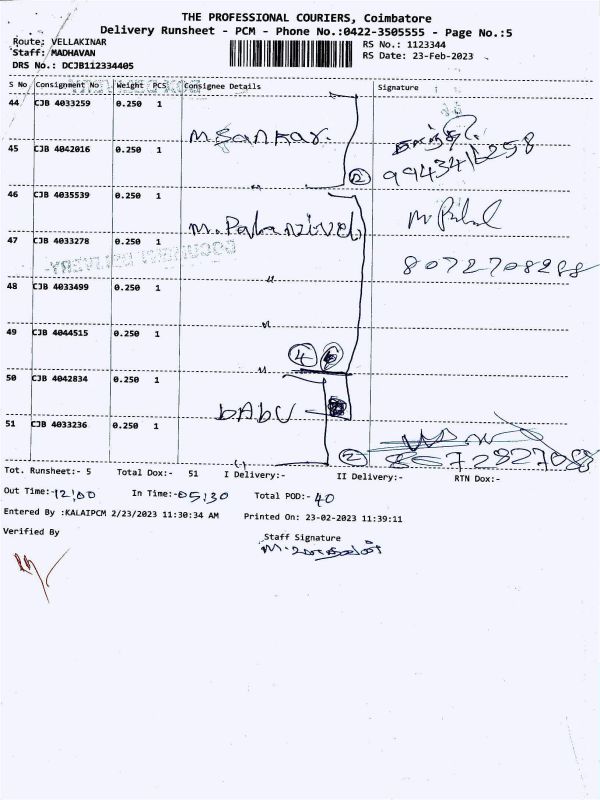 THE PROFESSIONAL COURIERS, Coimbatore
Delivery Runsheet - PCM - Phone No.:0422-3505555 - Page No.:5
Route: VELLAKINAR
Staff: MADHAVAN
DRS No.: DCJB112334405
RS No.: 1123344
RS Date: 23-Feb-2023
S No Consignment No Weight PCS Consignee Details Signature
44 CJB 4033259 0.250 1
M Sankar.
45 CJB 4042016 0.250 1
2
46 CJB 4035539 0.250 1
M. Palanzivel
47 CJB 4033278 0.250 1
8072708288
DOCUMENT DELIVERY
48 CJB 4033499 0.250 1
49 CJB 4044515 0.250 1
4
50 CJB 4042834 0.250 1
bAbU
51 CJB 4033236 0.250 1
2
Tot. Runsheet:- 5 Total Dox:- 51 I Delivery:- II Delivery:- RTN Dox:-
Out Time:- 12:00 In Time:- 05:30 Total POD:- 40
Entered By :KALAIPCM 2/23/2023 11:30:34 AM Printed On: 23-02-2023 11:39:11
Verified By
Staff Signature